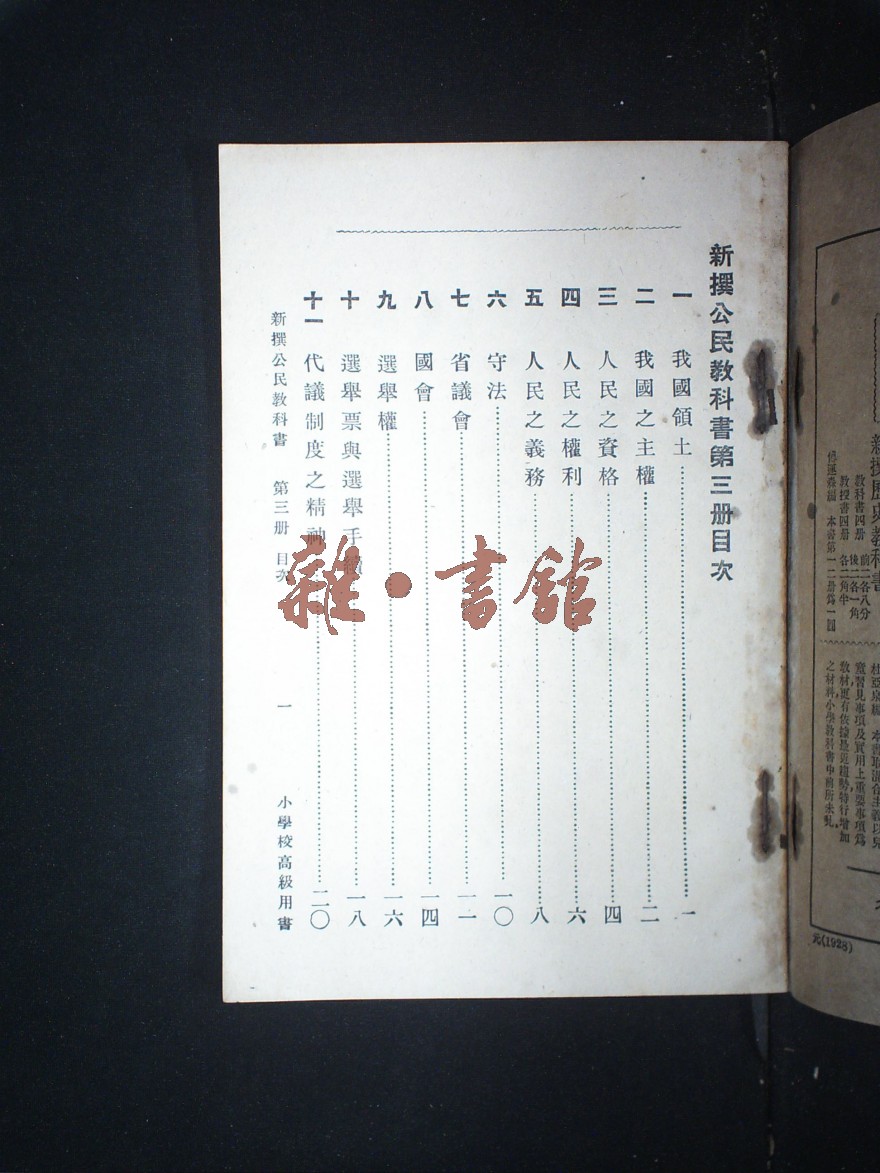 新撰公民教科書第三册目次
一 我國領土 一
二 我國之主權 二
三 人民之資格 四
四 人民之權利 六
五 人民之義務 八
六 守法 一〇
七 省議會 一一
八 國會 一四
九 選舉權 一六
十 選舉票與選舉手續 一八
十一 代議制度之精神 二〇
新撰公民教科書 第三册 目次 一 小學校高級用書
雜·書館
新撰歷史教科書
教科書四册 前二各八分 後二各一角
教授書四册 各二角半
本書第一二册爲一圓
本書取混合主義以兒
童習見事項及實用上重要事項爲
教材更有依據最近趨勢特行增加
之材料小學教科書中前所未見
元(1928)